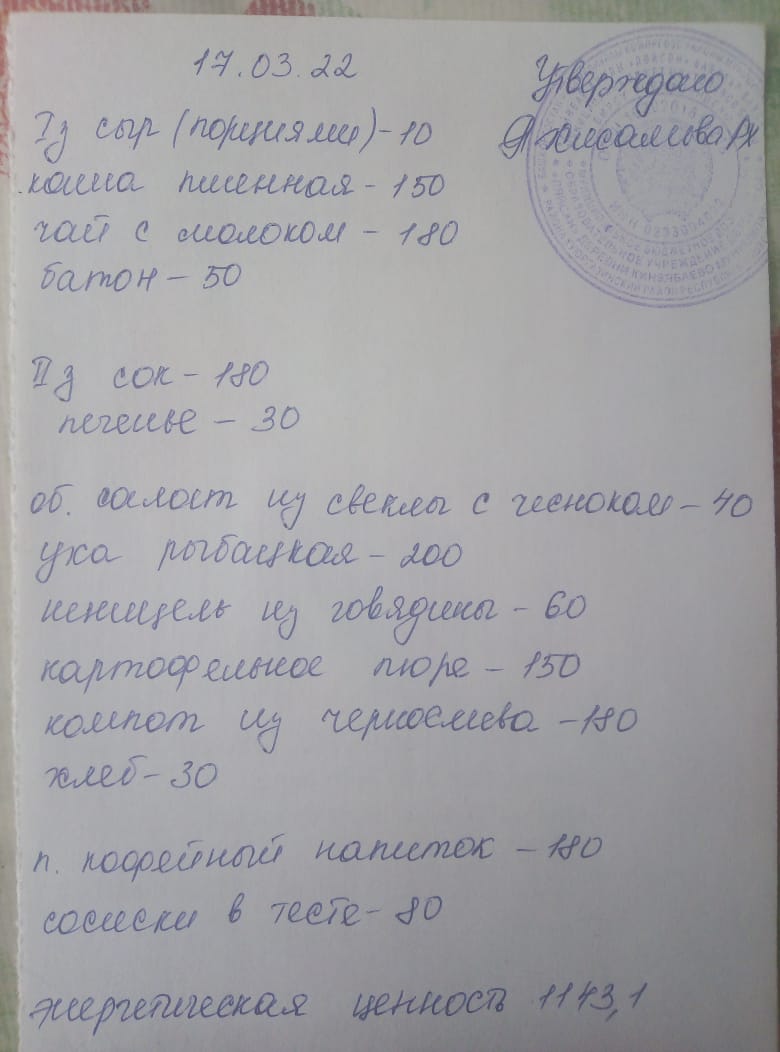 17.03.22
Утверждаю
Iз сыр (порциями) - 10
каша пшенная - 150
чай с молоком - 180
батон - 50
II з сок - 180
печенье - 30
об. салат из свеклы с чесноком - 40
уха рыбацкая - 200
шницель из говядины - 60
картофельное пюре - 150
компот из чернослива - 180
хлеб - 30
п. кофейный напиток - 180
сосиски в тесте - 80
энергетическая ценность 1143,1